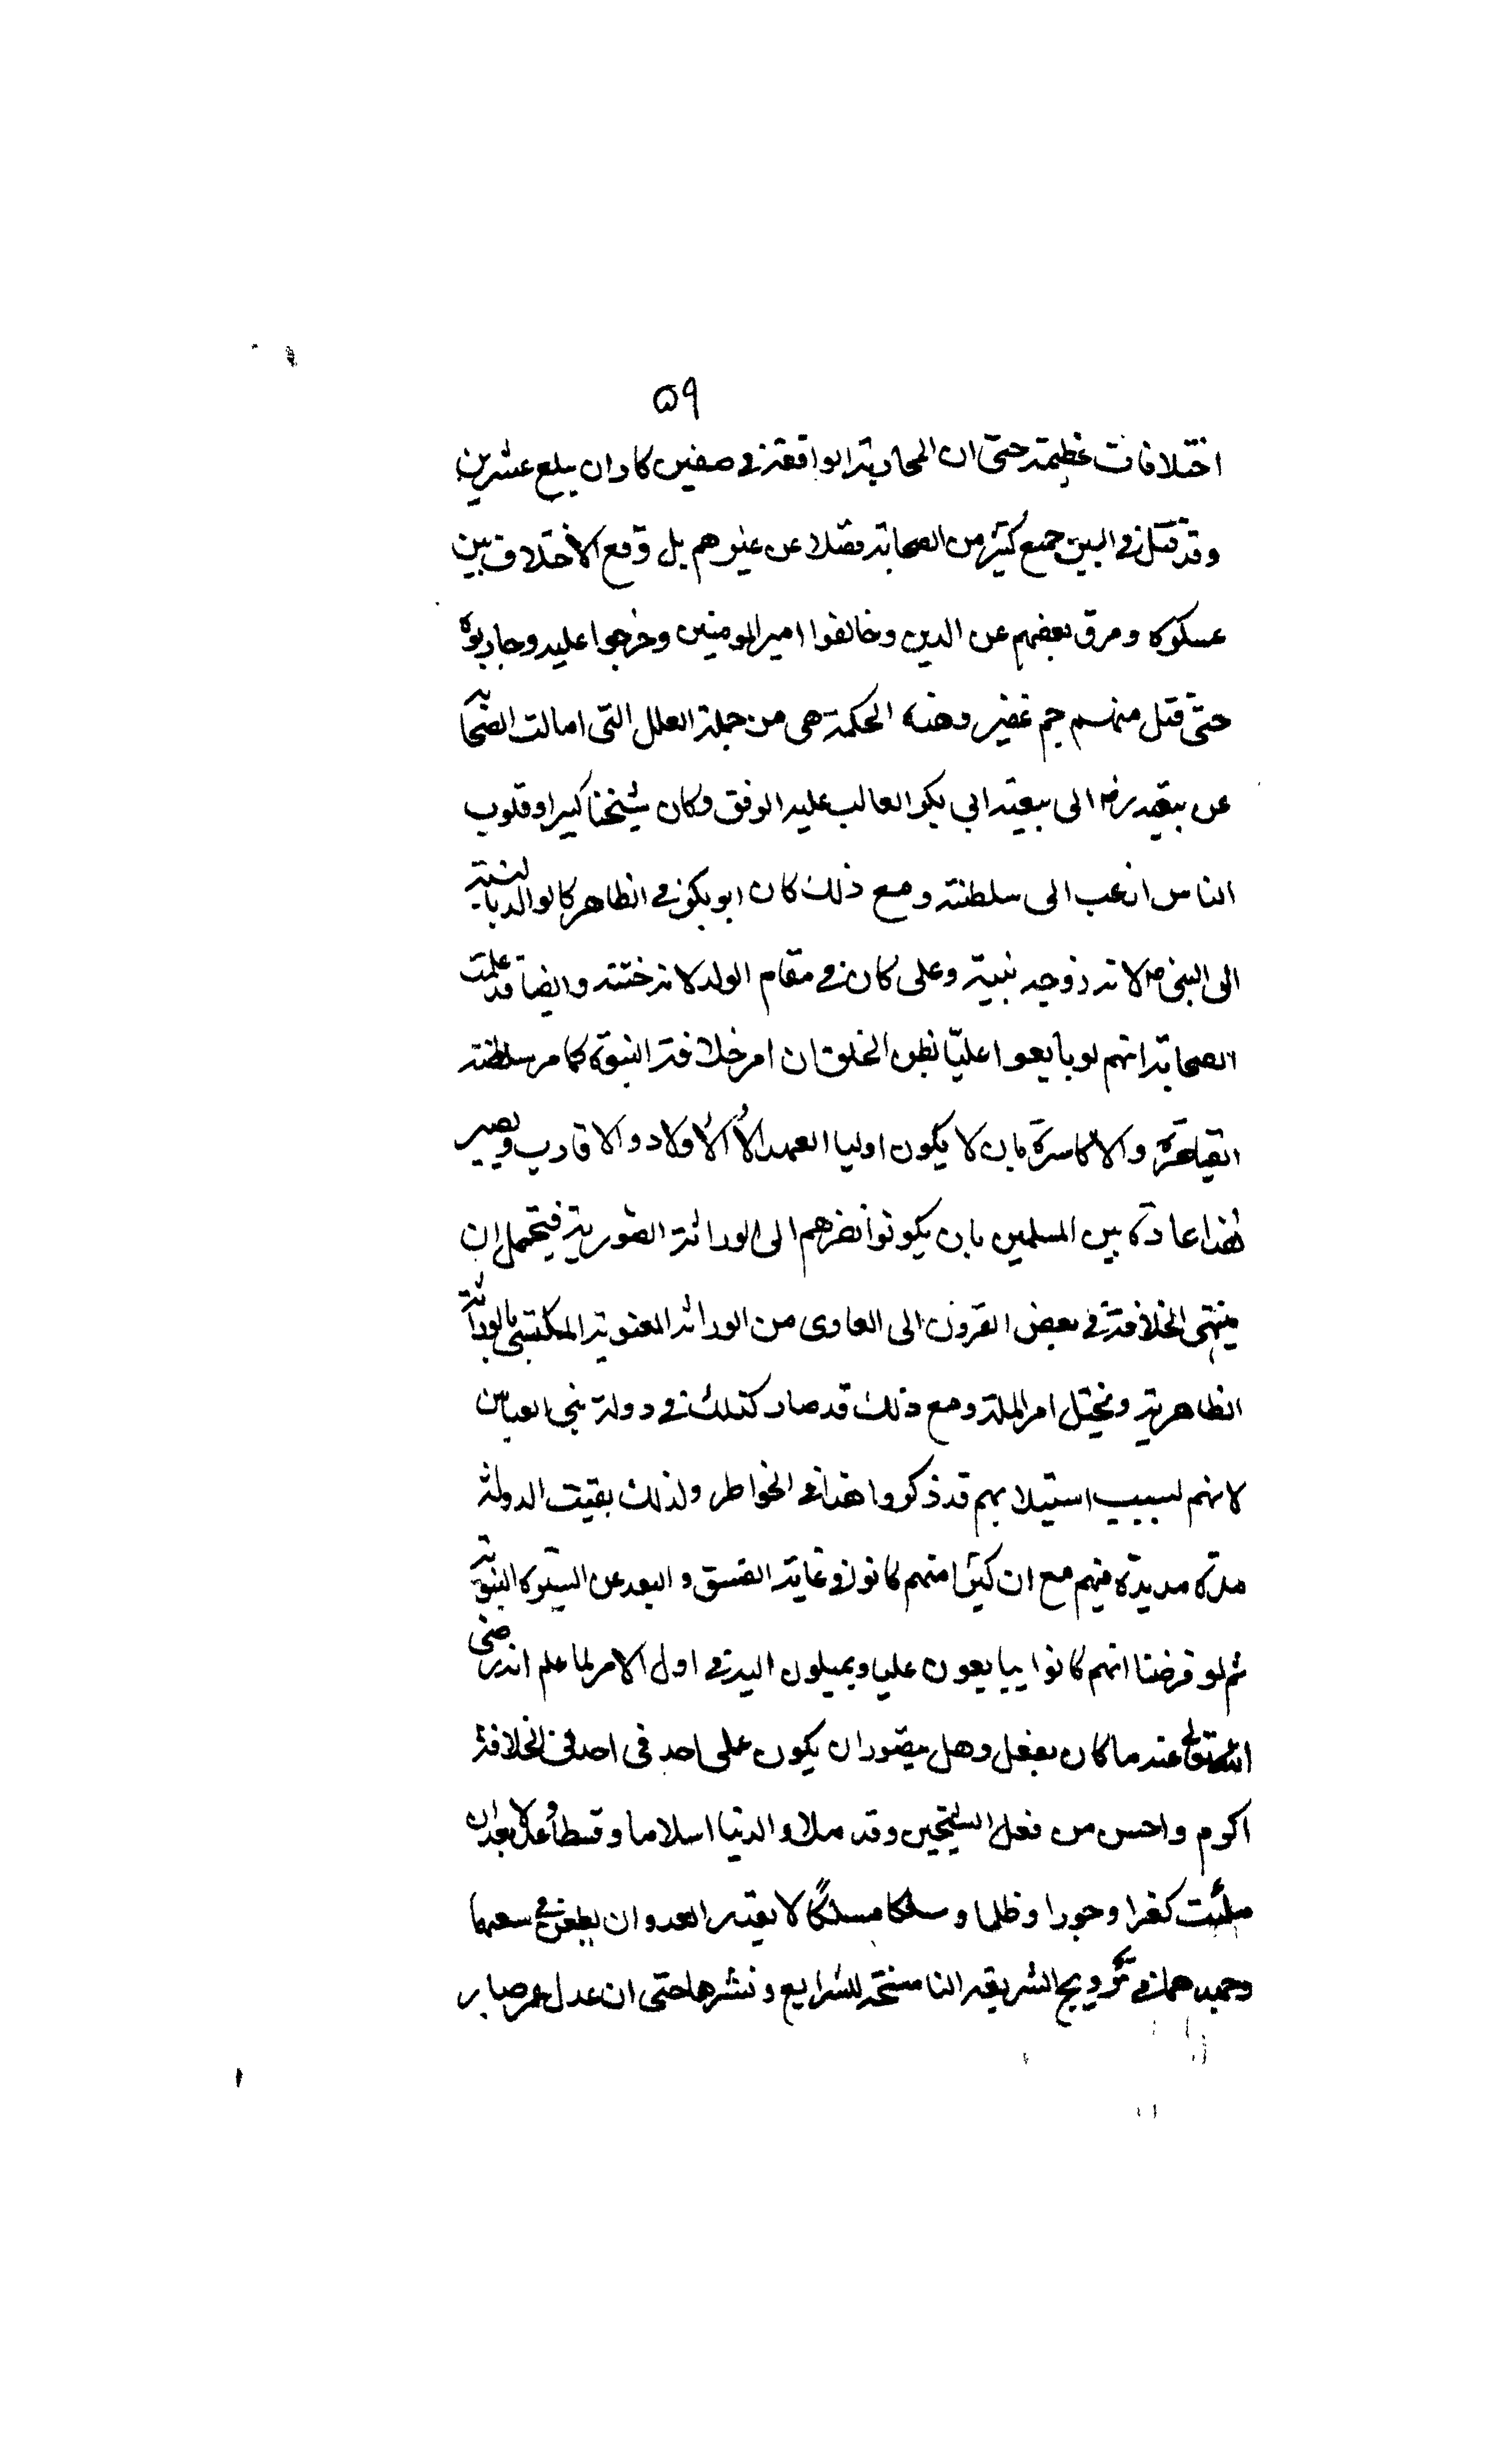 ٥٩
اختلافات عظيمة حتى ان المحاربة الواقعة في صفين كاد ان يبلغ عشرين
وقد قتل في البين جمع كثير من الصحابة فضلا عن غيرهم بل وقع الاختلاف بين
عسكره ومرق بعضهم عن الدين وخالفوا امير المومنين وخرجوا عليه وحاربوه
حتى قتل منهم جم غفير وهذه الحكمة هى من جملة العلل التى امالت الصحابة
عن بيعته رض الى بيعة ابي بكر الغالب عليه الرفق وكان شيخنا كبيرا وقلوب
الناس ارغب الى سلطنته ومع ذلك كان ابو بكر في الظاهر كالوالد بالنسبة
الى النبي ص لانه زوجه بنته وعلى كان في مقام الولد لانه ختنه وايضا قد علمت
الصحابة انهم لو بايعوا عليّا يظن الخلق ان امر خلافة النبوة كامر سلطنة
القياصرة والاكاسرة بان لا يكون اوليا العهد الا الاولاد والاقارب ويصير
هذا عادة بين المسلمين بان يكونوا نظرهم الى الوراثة الصورية فيحتمل ان
ينتهى الخلافة في بعض القرون الى العارى من الوراثة المعنوية المكتسى بالوراثة
الظاهرية ويختل امر الملة ومع ذلك قد صار كذلك في دولة بني العباس
لانهم بسبب استيلائهم قد ذكروا هذا في الخواطر ولذلك بقيت الدولة
مدة مديدة فيهم مع ان كثيرا منهم كانوا في غاية الفسق والبعد عن السيرة النبوية
ثم لو فرضنا انهم كانوا يبايعون عليا ويميلون اليه في اول الامر لما علم انه رضى
الله عنه ما كان يفعل وهل يتصور ان يكون على احد فى احد فى الخلافة
اكرم واحسن من فعل الشيخين وقد ملاء الدنيا اسلاما وقسطا وعدلا بعد ان
ملئت كفرا وجورا وظلما وسلكا مسلكًا لا يقدر العدو ان يطعن في سعيهما
وجهدهما في ترويج الشريعة الناسخة للشرايع ونشرها حتى ان عدل عمر صار